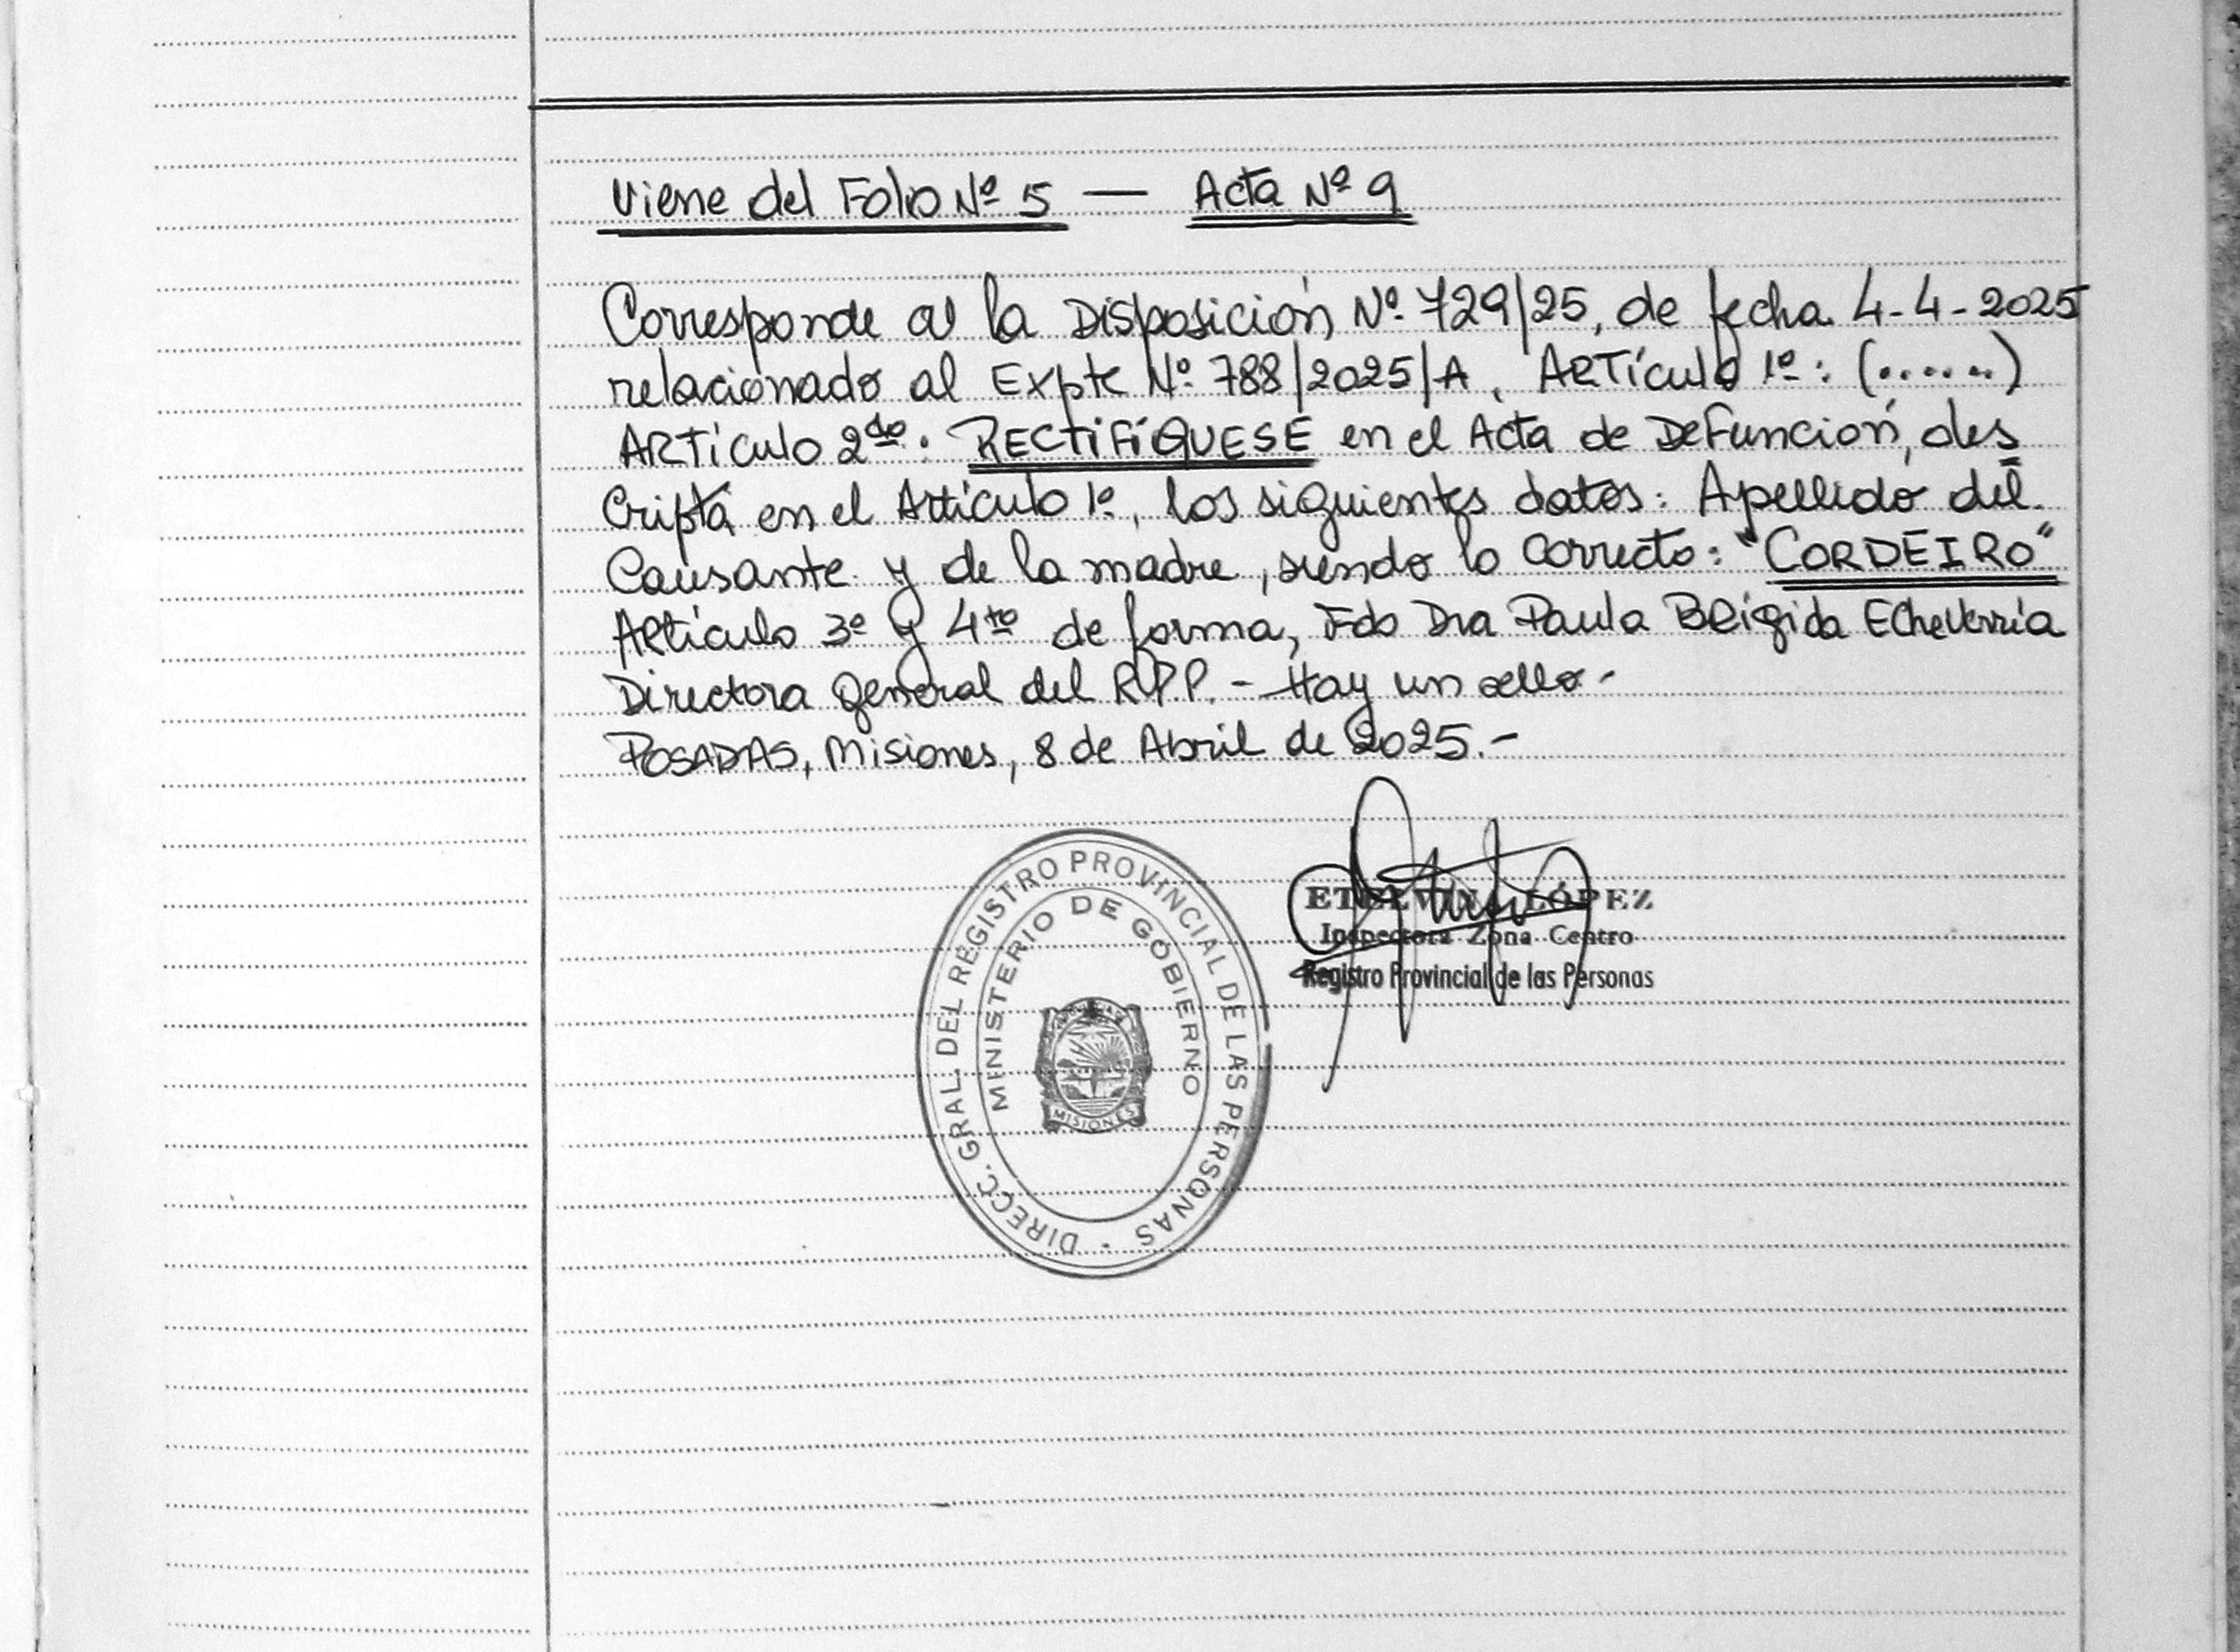 Viene del Folio Nº 5 — Acta Nº 9
Corresponde a la Disposición Nº 729/25, de fecha 4-4-2025
relacionado al Expte Nº 788/2025/A, ARTículo 1º: (......)
ARTículo 2do: RECTIFÍQUESE en el Acta de Defunción, des
Cripta en el Artículo 1º, los siguientes datos: Apellido del
Causante y de la madre, siendo lo Correcto: "CORDEIRO"
Artículo 3º y 4to de forma, Fdo Dra Paula Brígida Echeverría
Directora General del RPP. - Hay un sello -
POSADAS, Misiones, 8 de Abril de 2025.-
DIRECC. GRAL. DEL REGISTRO PROVINCIAL DE LAS PERSONAS
MINISTERIO DE GOBIERNO
MISIONES
ETELVINA LÓPEZ
Inspectora Zona Centro
Registro Provincial de las Personas